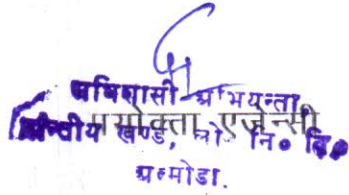 अधिशासी अभियन्ता
प्रयोक्ता एजेन्सी
प्रान्तीय खण्ड, लो० नि० वि०
अल्मोडा.